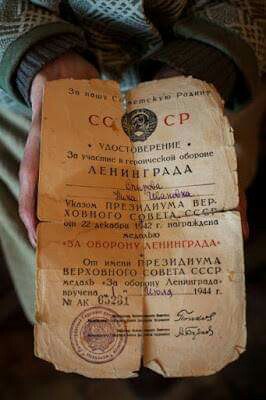 За нашу Советскую Родину
СССР
УДОСТОВЕРЕНИЕ
За участие в героической обороне
ЛЕНИНГРАДА
Нина Ивановна
Указом ПРЕЗИДИУМА ВЕР-
ХОВНОГО СОВЕТА СССР
от 22 декабря 1942 г. награждена
медалью
«ЗА ОБОРОНУ ЛЕНИНГРАДА»
От имени ПРЕЗИДИУМА
ВЕРХОВНОГО СОВЕТА СССР
медаль «За оборону Ленинграда»
вручена 1 Июля 1944 г.
№ АК 65231